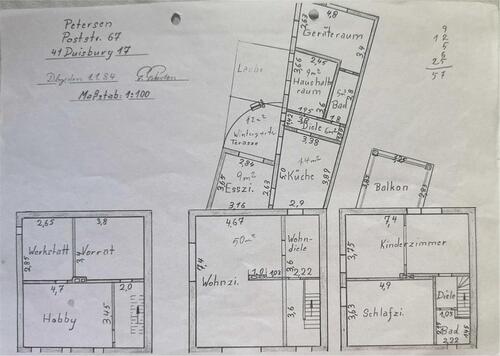 Petersen
Poststr. 67
41 Duisburg 17
Maßstab: 1:100
9
12
5
6
25
57
4,8
2,63
Geräteraum
3,4
3,66
2,45
9m²
Haushalts
raum
3,6
Bad
2,8
1,8
1,95
3,0
Diele
6m²
1,42
3,38
Laube
12m²
Wintergarten
Terasse
2,86
9m²
Esszi.
3,16
2,63
5,0
14m²
Küche
3,89
2,9
Balkon
2,65
3,8
Werkstatt
Vorrat
2,85
4,7
2,0
Hobby
3,45
4,67
50m²
Wohn-
diele
7,4
Wohnzi.
3,6
2,22
1,03
3,6
7,4
3,75
Kinderzimmer
4,9
3,63
Schlafzi.
Diele
1,03
Bad
1,45
2,22